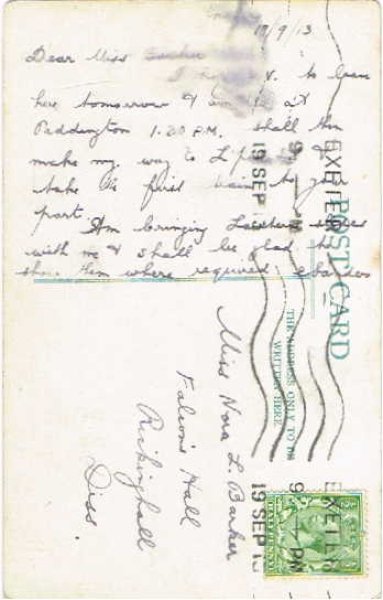 19/9/13
Dear Miss Barker
to leave
here tomorrow &
Paddington 1.20 P.M. shall then
make my way to L
take the first train to your
part. Am bringing Lantern slides
with me & shall be glad to
show them where required
POST CARD
THE ADDRESS ONLY TO BE
WRITTEN HERE
Miss Nora L. Barker
Falcon's Hall
Rickinghall
Diss.
EXETER
9 — PM
19 SEP 13
EXETER
9 — PM
19 SEP 13
HALFPENNY